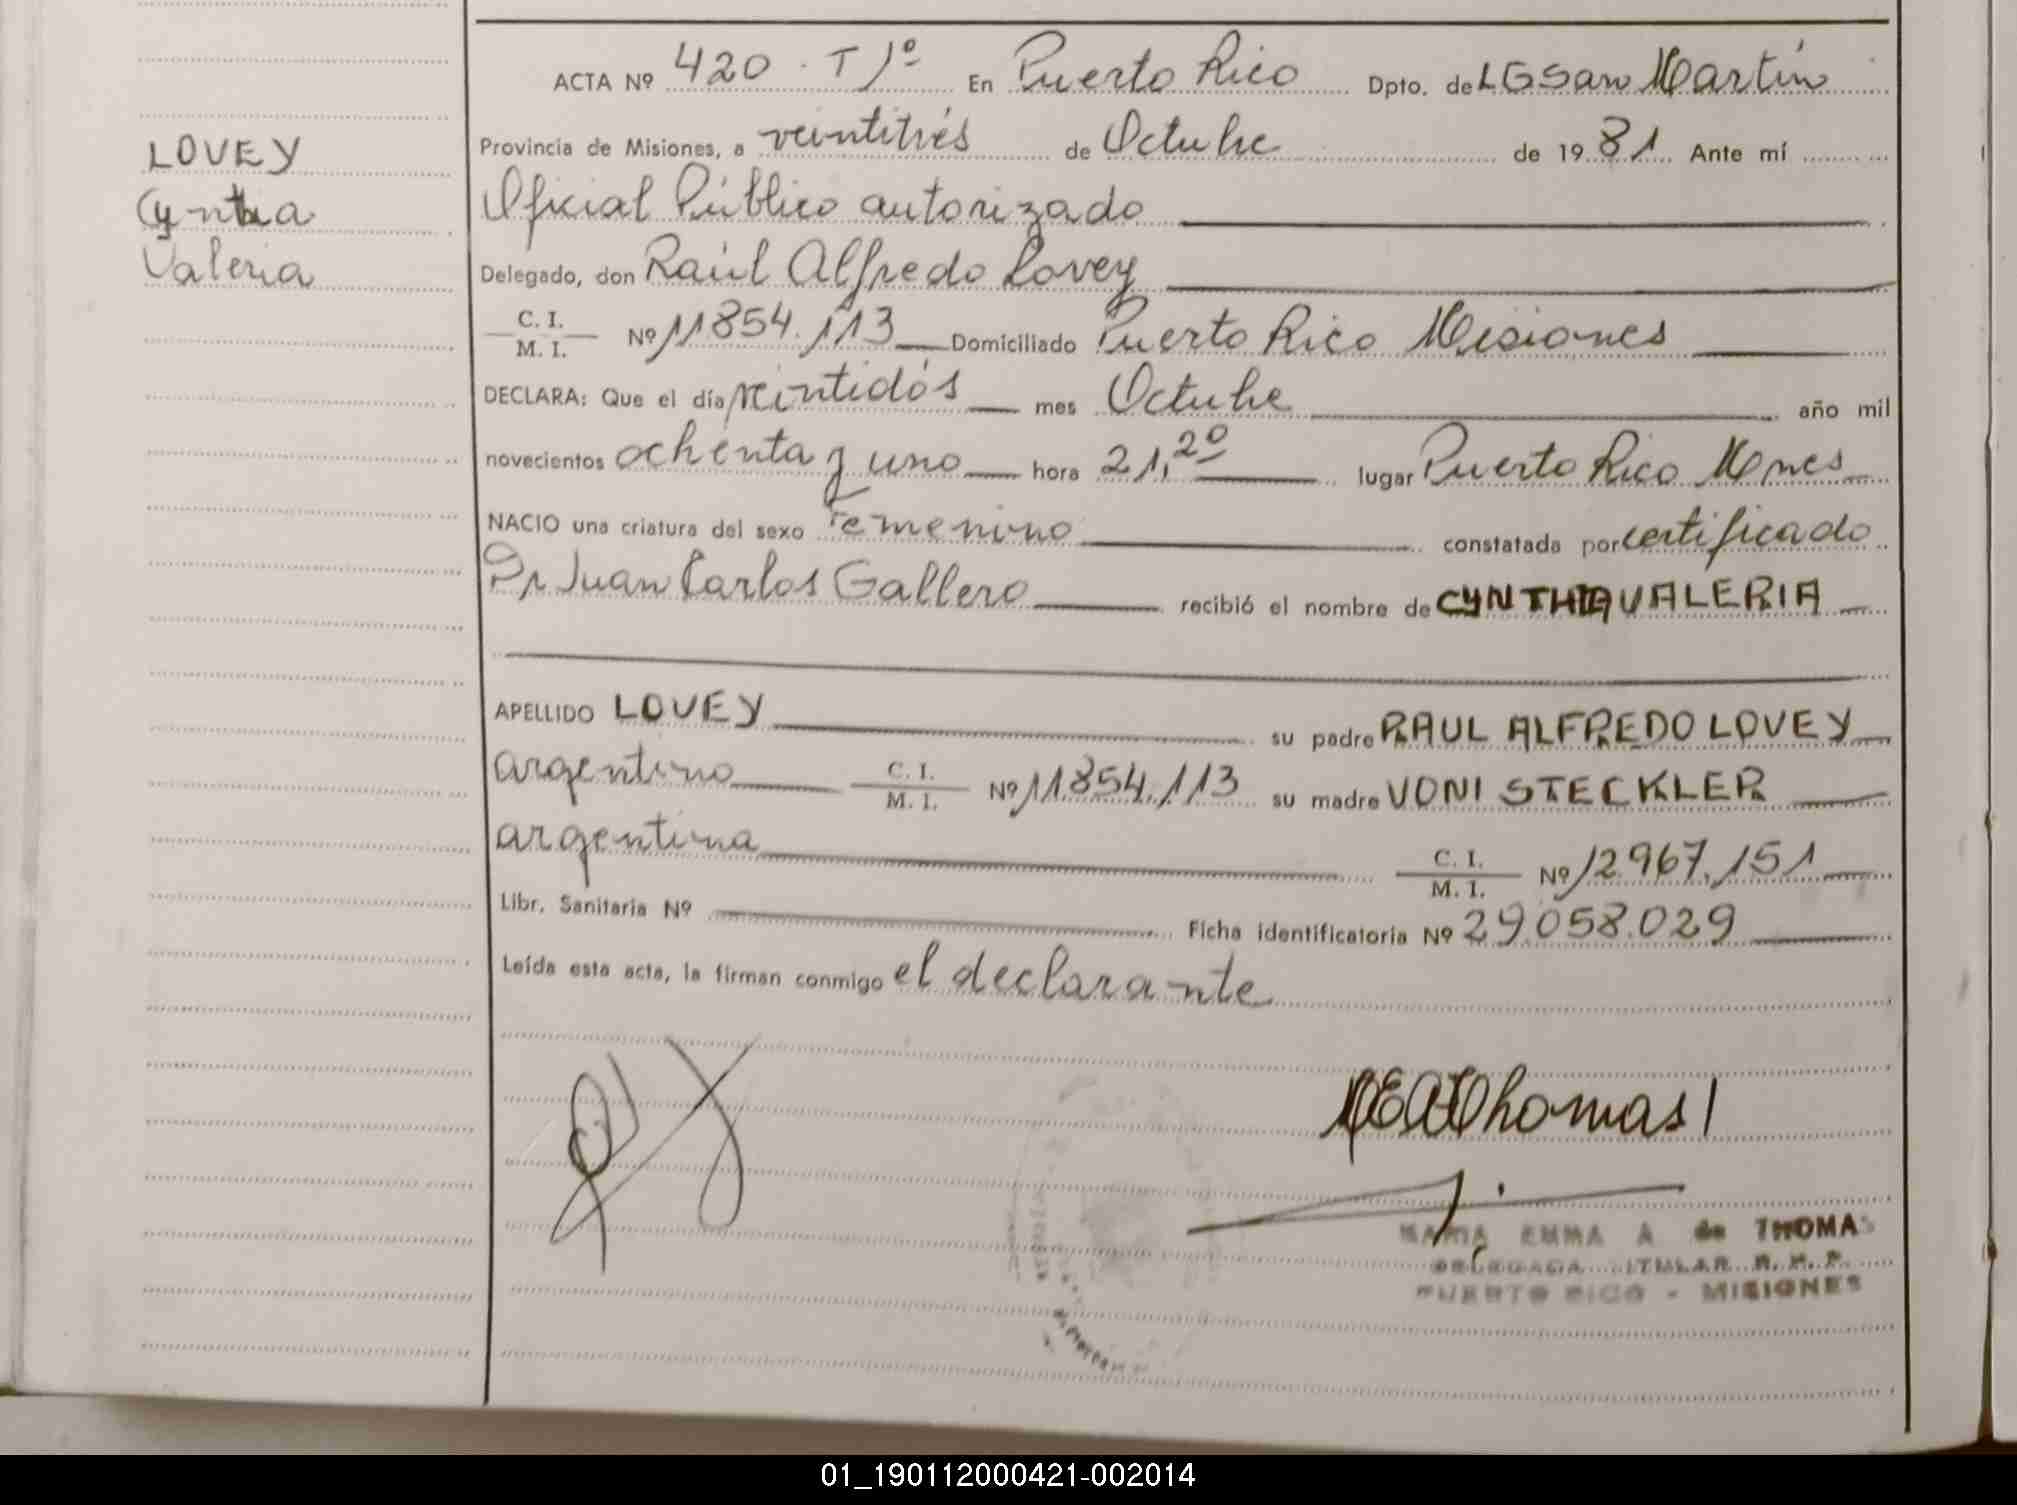 LOVEY
Cynthia
Valeria
ACTA Nº 420 - T 1º En Puerto Rico Dpto. de LGSan Martín
Provincia de Misiones, a veintitrés de Octubre de 1981 Ante mí
Oficial Público autorizado
Delegado, don Raúl Alfredo Lovey
C. I.
M. I.
Nº 11854.113 Domiciliado Puerto Rico Misiones
DECLARA: Que el día veintidós mes Octubre año mil
novecientos ochenta y uno hora 21,20 lugar Puerto Rico Mnes
NACIO una criatura del sexo Femenino constatada por certificado
Dr Juan Carlos Gallero recibió el nombre de CYNTHIA VALERIA
APELLIDO LOVEY su padre RAUL ALFREDO LOVEY
argentino C. I. M. I. Nº 11854.113 su madre VONI STECKLER
argentina C. I. M. I. Nº 12967.151
Libr. Sanitaria Nº Ficha identificatoria Nº 29.058.029
Leída esta acta, la firman conmigo el declarante
Thomas
MARIA EMMA A de THOMAS
DELEGADA TITULAR R. M. P.
PUERTO RICO - MISIONES
01_190112000421-002014